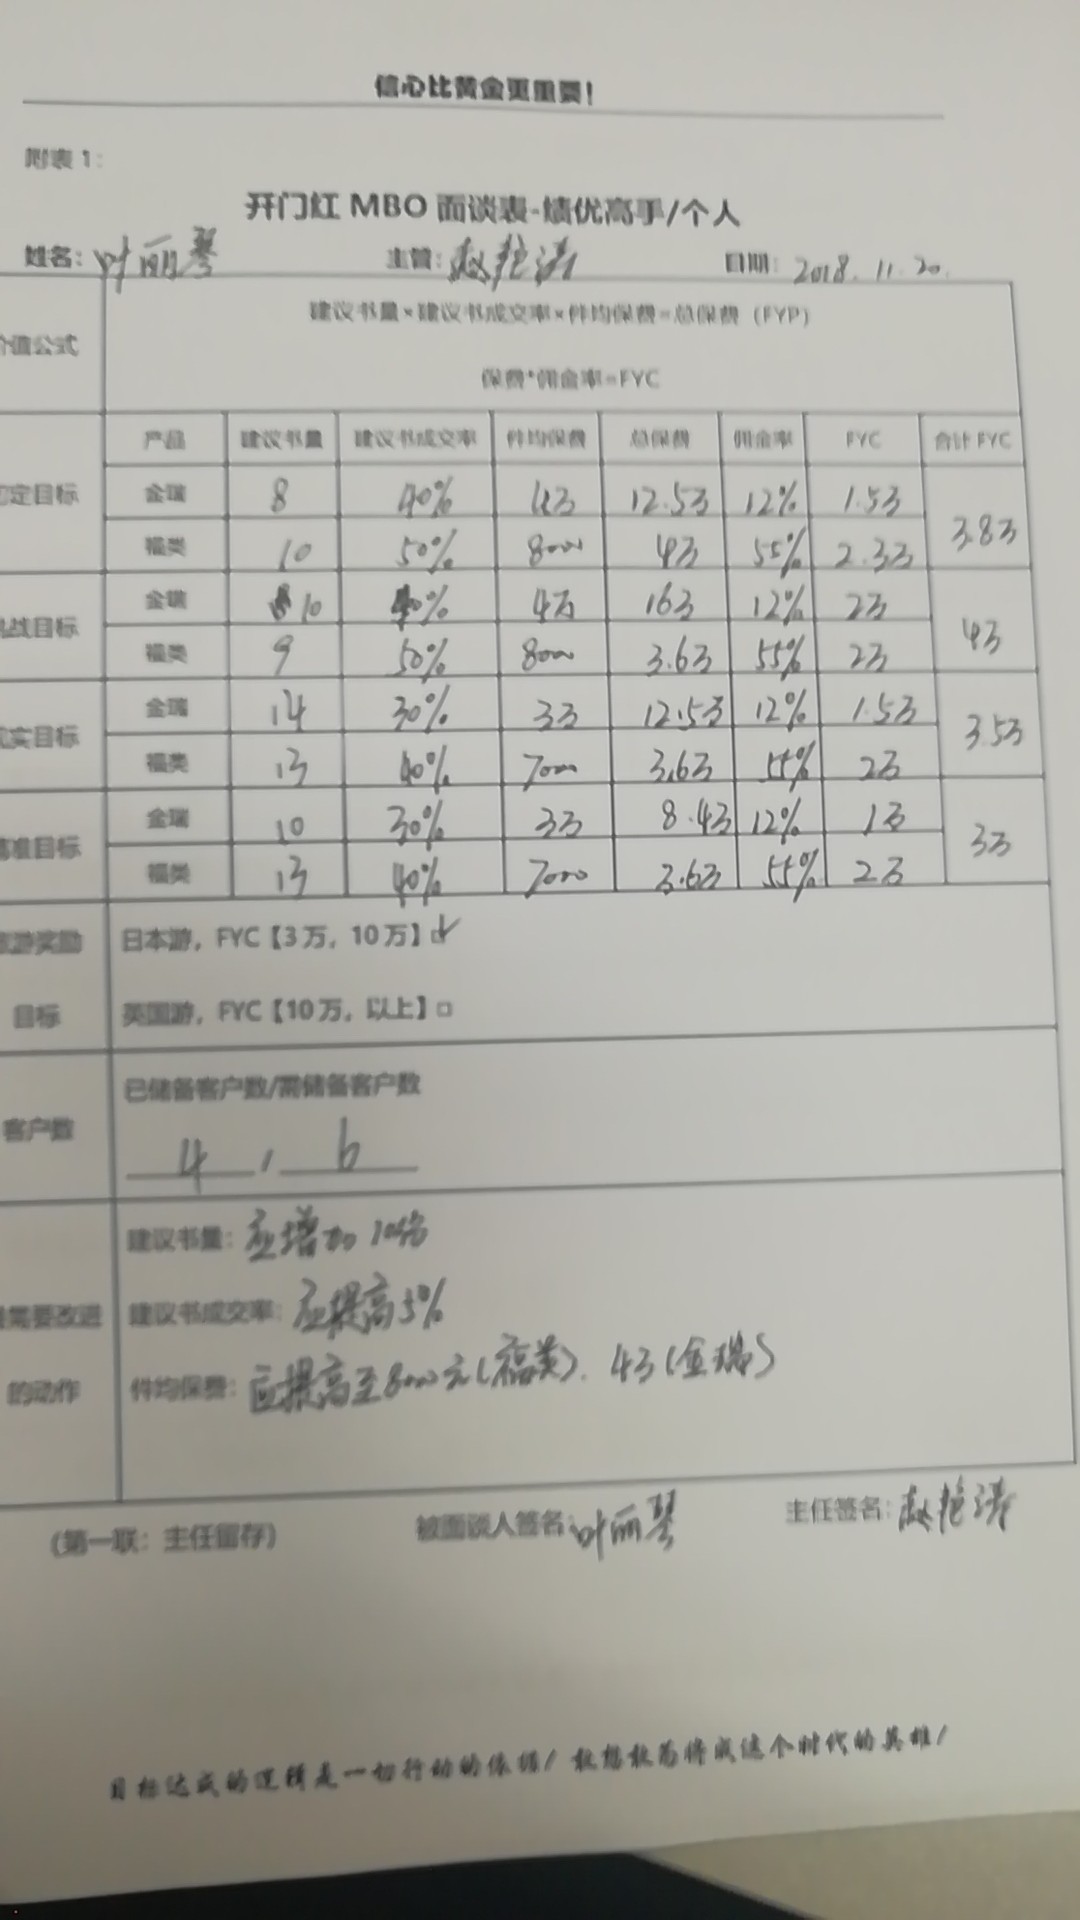 信心比黄金更重要！
附表1：
开门红 MBO 面谈表-绩优高手/个人
姓名：叶丽琴 主管： 日期：2018.11.20.
价值公式 建议书量×建议书成交率×件均保费=总保费（FYP）
保费*佣金率=FYC
产品 建议书量 建议书成交率 件均保费 总保费 佣金率 FYC 合计FYC
定目标 金瑞 8 40% 4万 12.5万 12% 1.5万 3.8万
福类 10 50% 8000 4万 55% 2.3万
战目标 金瑞 10 40% 4万 16万 12% 2万 4万
福类 9 50% 8000 3.6万 55% 2万
实目标 金瑞 14 30% 3万 12.5万 12% 1.5万 3.5万
福类 13 40% 7000 3.6万 55% 2万
准目标 金瑞 10 30% 3万 8.4万 12% 1万 3万
福类 13 40% 7000 3.6万 55% 2万
游奖励 日本游，FYC【3万，10万】☑
目标 英国游，FYC【10万，以上】□
客户数 已储备客户数/需储备客户数
4 / 6
建议书量：应增加10%
需要改进 建议书成交率：应提高5%
的动作 件均保费：应提高至8000元(福类). 4万(金瑞)
(第一联：主任留存) 被面谈人签名：叶丽琴 主任签名：
目标达成的逻辑是一切行动的依据！敢想敢为将成这个时代的英雄！